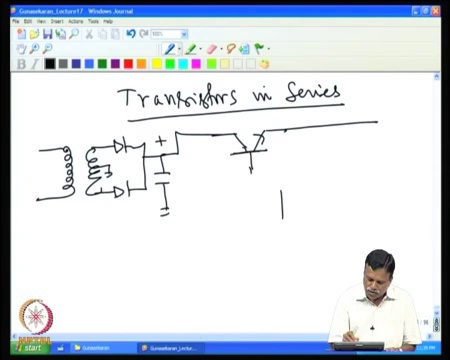 Gunasekaran_Lecture17 - Windows Journal
File Edit View Insert Actions Tools Help
100%
B I
Transistors in Series
+
start
Gunasekaran
Gunasekaran_Lectu...
NPTEL